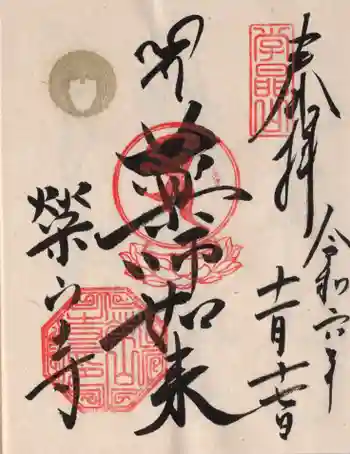 奉拝
令和六年
十一月十七日
薬師如来
榮山寺